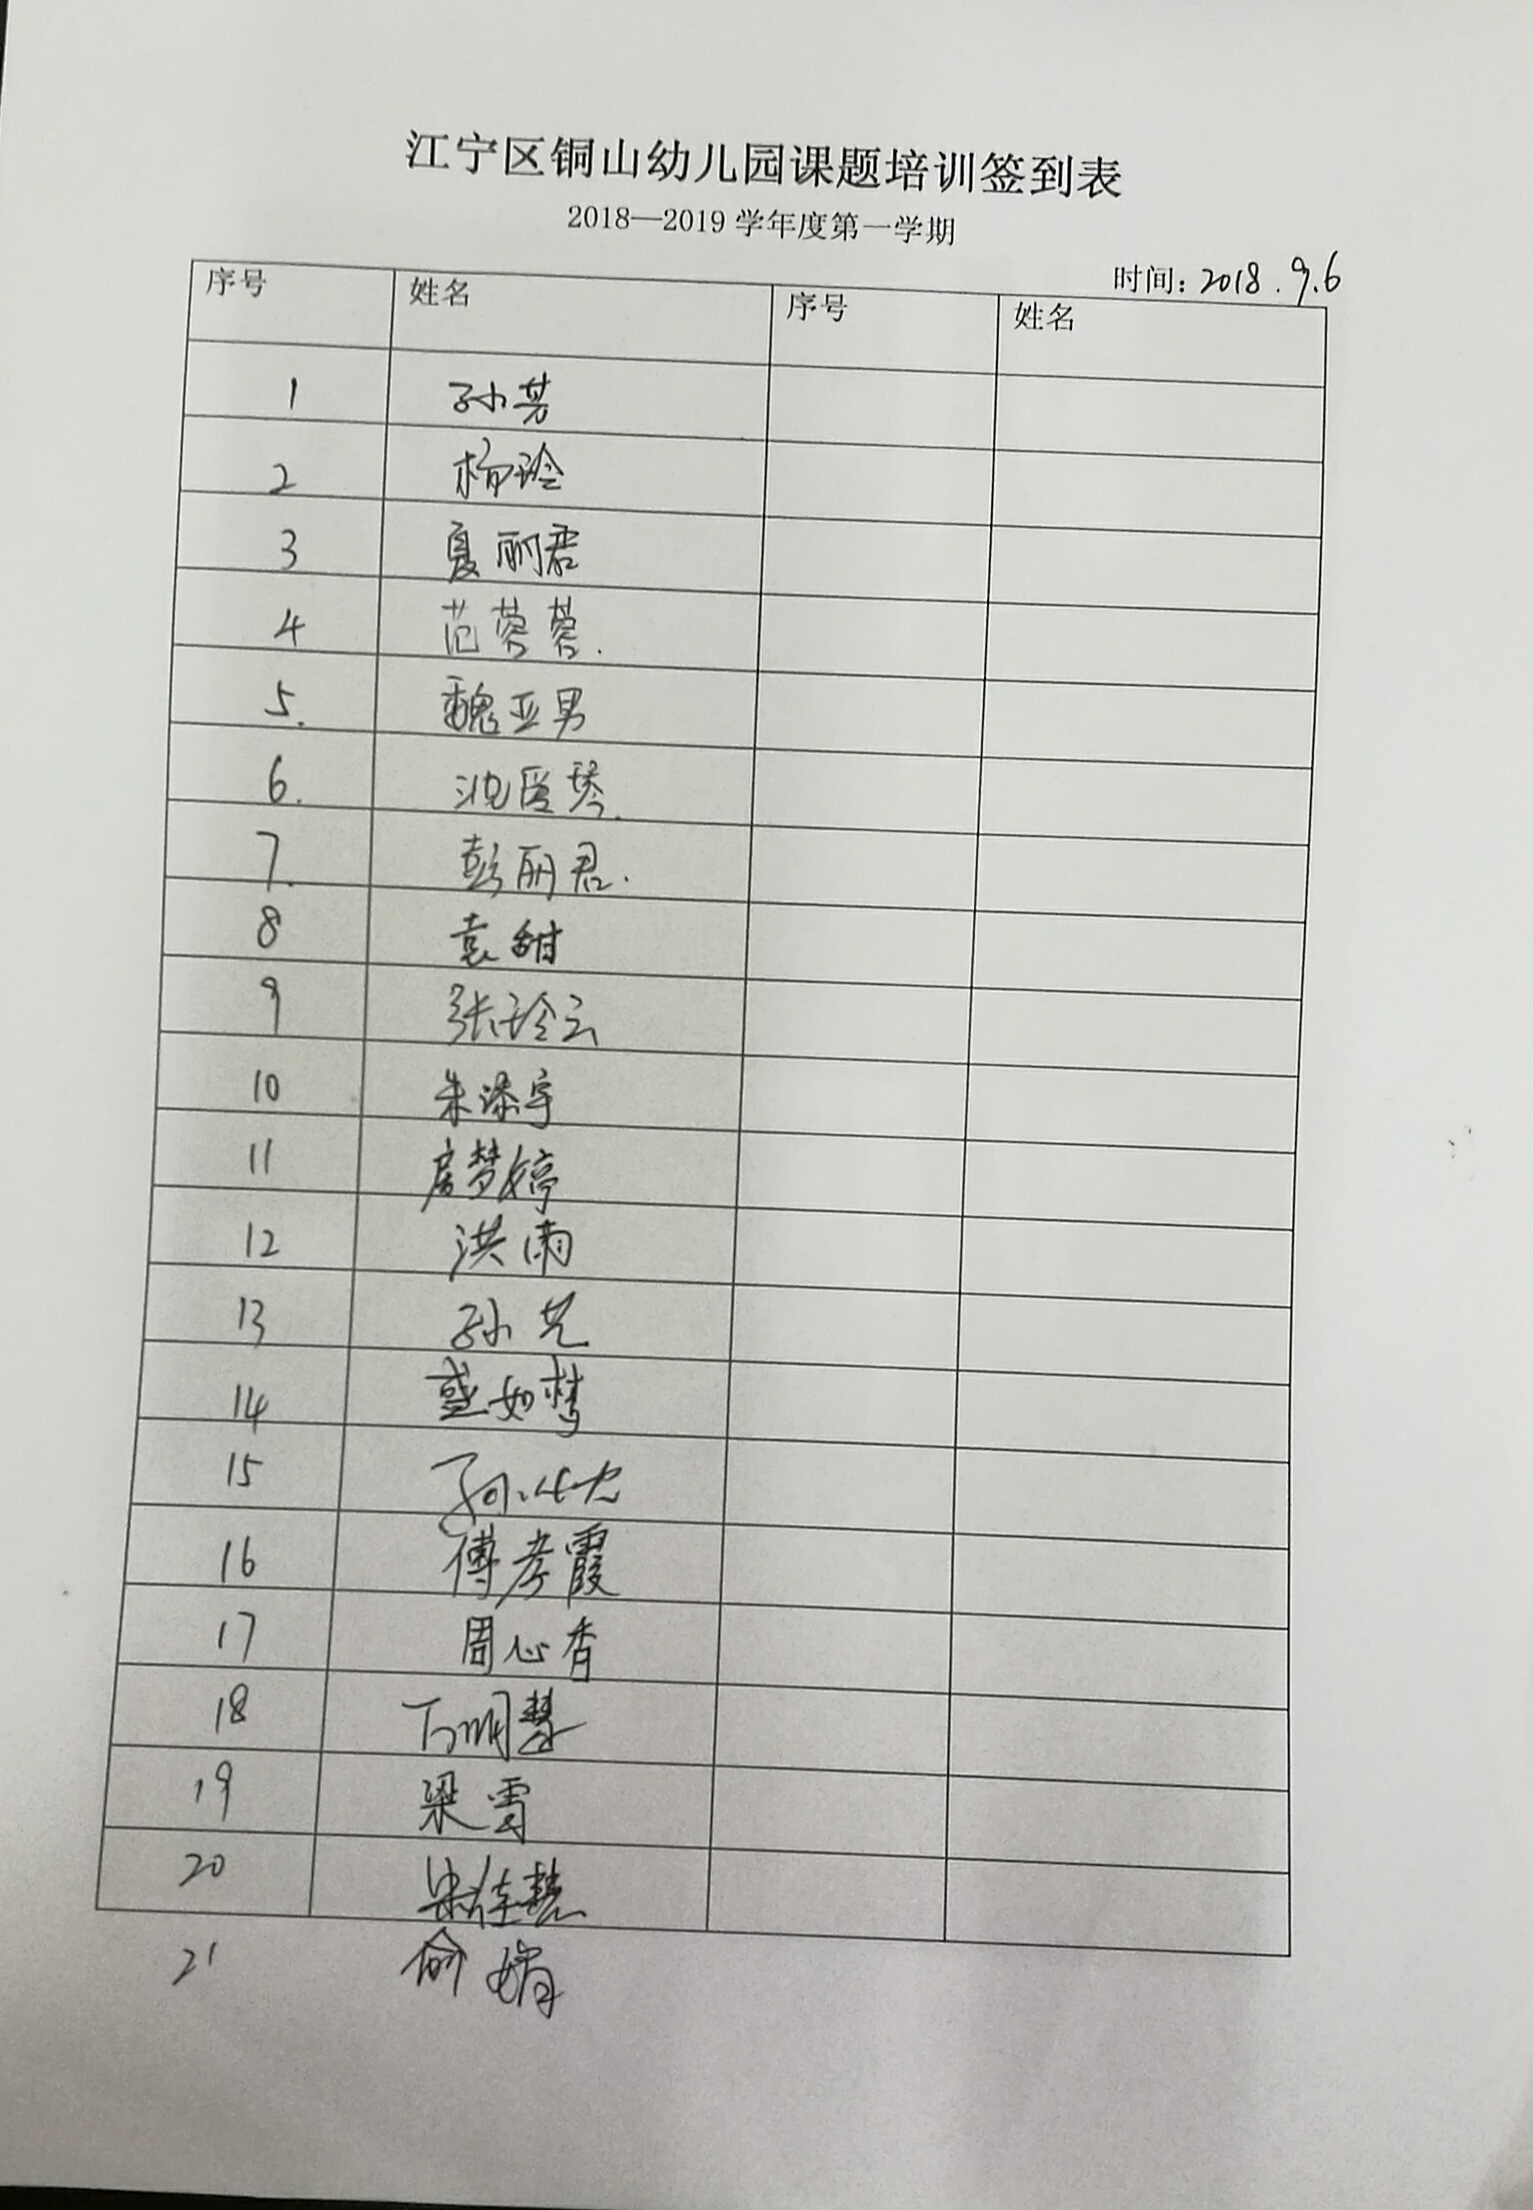 江宁区铜山幼儿园课题培训签到表
2018—2019 学年度第一学期
时间: 2018.9.6
序号 姓名 序号 姓名
1 孙芳
2 杨玲
3 夏丽君
4 范蓉蓉.
5. 魏亚男
6. 沈爱琴.
7. 彭丽君.
8 袁甜
9 张玲云
10 朱添宇
11 房梦婷
12 洪雨
13 孙艺
14 盛如梦
15
16 傅孝霞
17 周心香
18 万明慧
19 梁雪
20 佳慧
21 俞娟